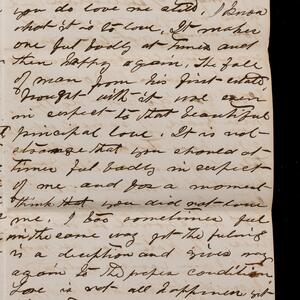 you do love me still, I know
what it is to love. It makes
one feel badly at times and
then happy again. The fall
of man from his first estate
brought with it ruin
in respect to that beautiful
principal love. It is not
strange that you should at
times feel badly in respect
of me and for a moment
think that you did not love
me, I too sometimes feel
in the same way yet the feeling
is a deception and gives way
again to the proper condition
Love is not all happiness yet